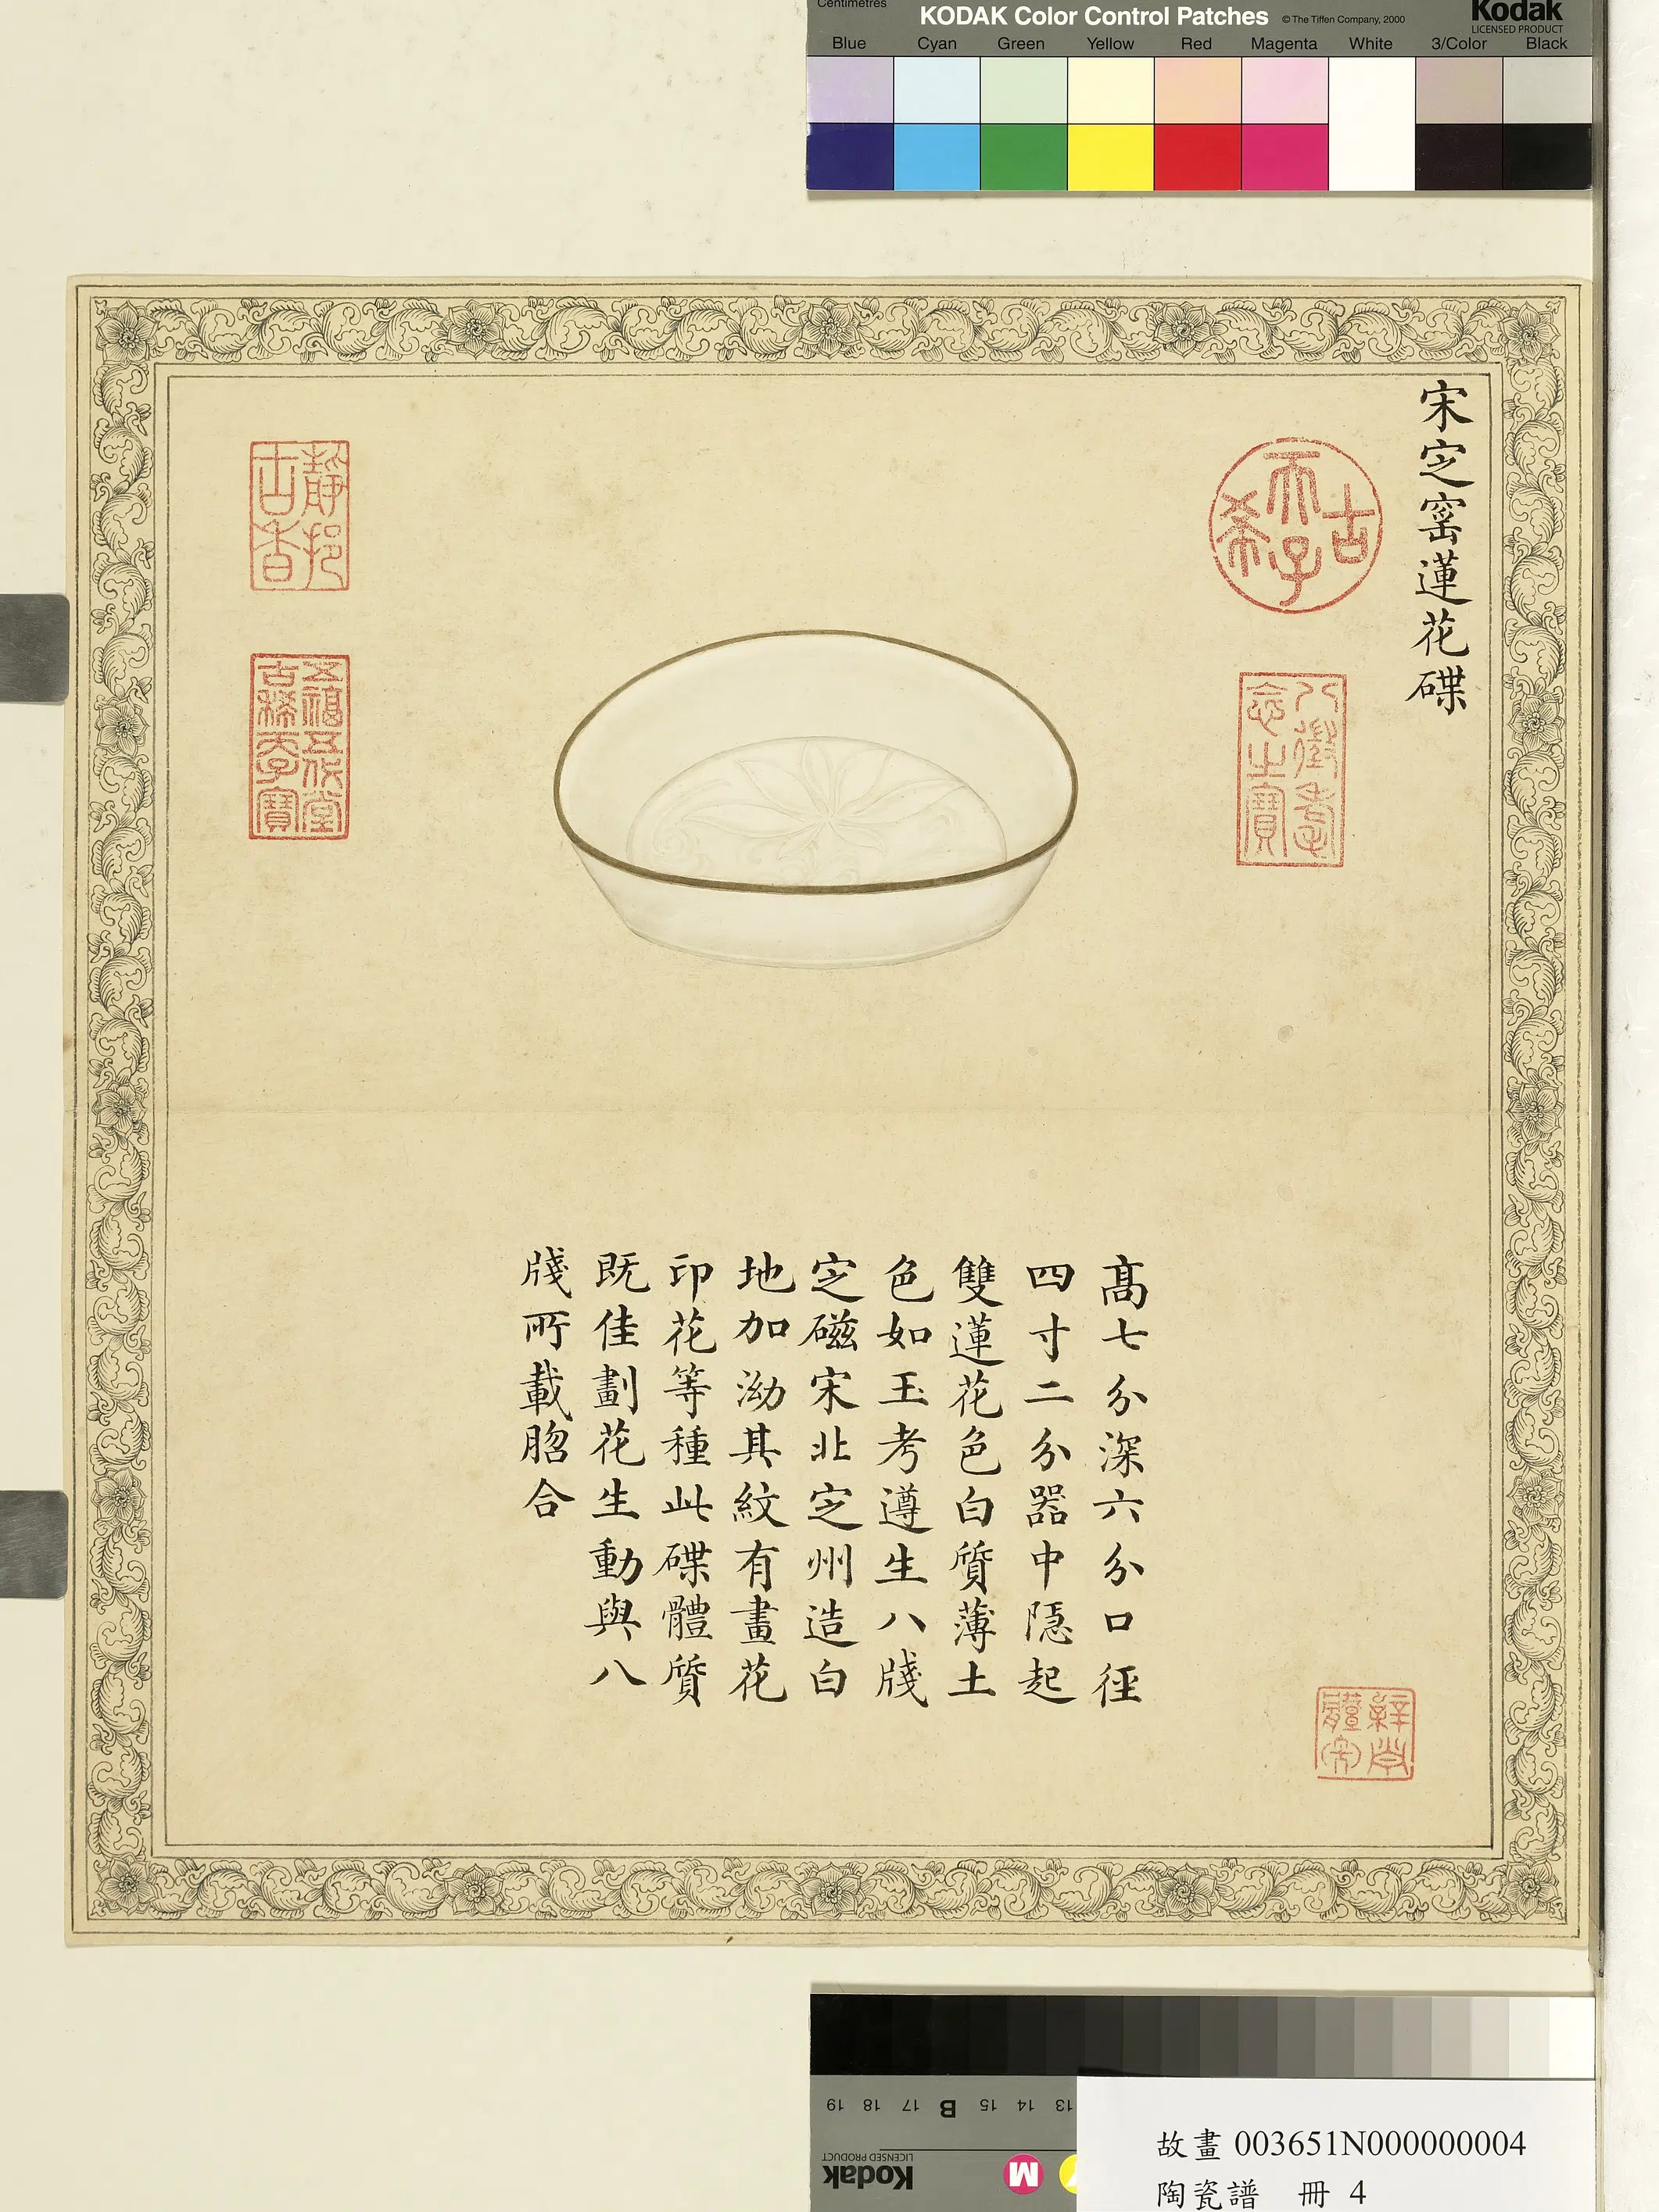 Centimetres
KODAK Color Control Patches © The Tiffen Company, 2000 Kodak
LICENSED PRODUCT
Blue Cyan Green Yellow Red Magenta White 3/Color Black
宋定窰蓮花碟
古希天子
八徵耄念之寶
靜挹古香
五福五代堂古稀天子寶
高七分深六分口徑
四寸二分器中隱起
雙蓮花色白質薄土
色如玉考遵生八牋
定磁宋北定州造白
地加泑其紋有畫花
印花等種此碟體質
既佳劃花生動與八
牋所載脗合
19 18 17 B 15 14 13
LICENSED PRODUCT
Kodak
M
故畫 003651N000000004
陶瓷譜 冊 4